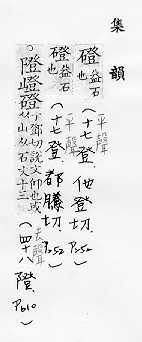 集韻
磴 益石也 平聲 (十七登.他登切.P252)
磴 益石也 平聲 (十七登.都騰切.P252)
。隥嶝磴 丁鄧切說文仰也或从山从石文十三 去聲 (四十八隥.P610)